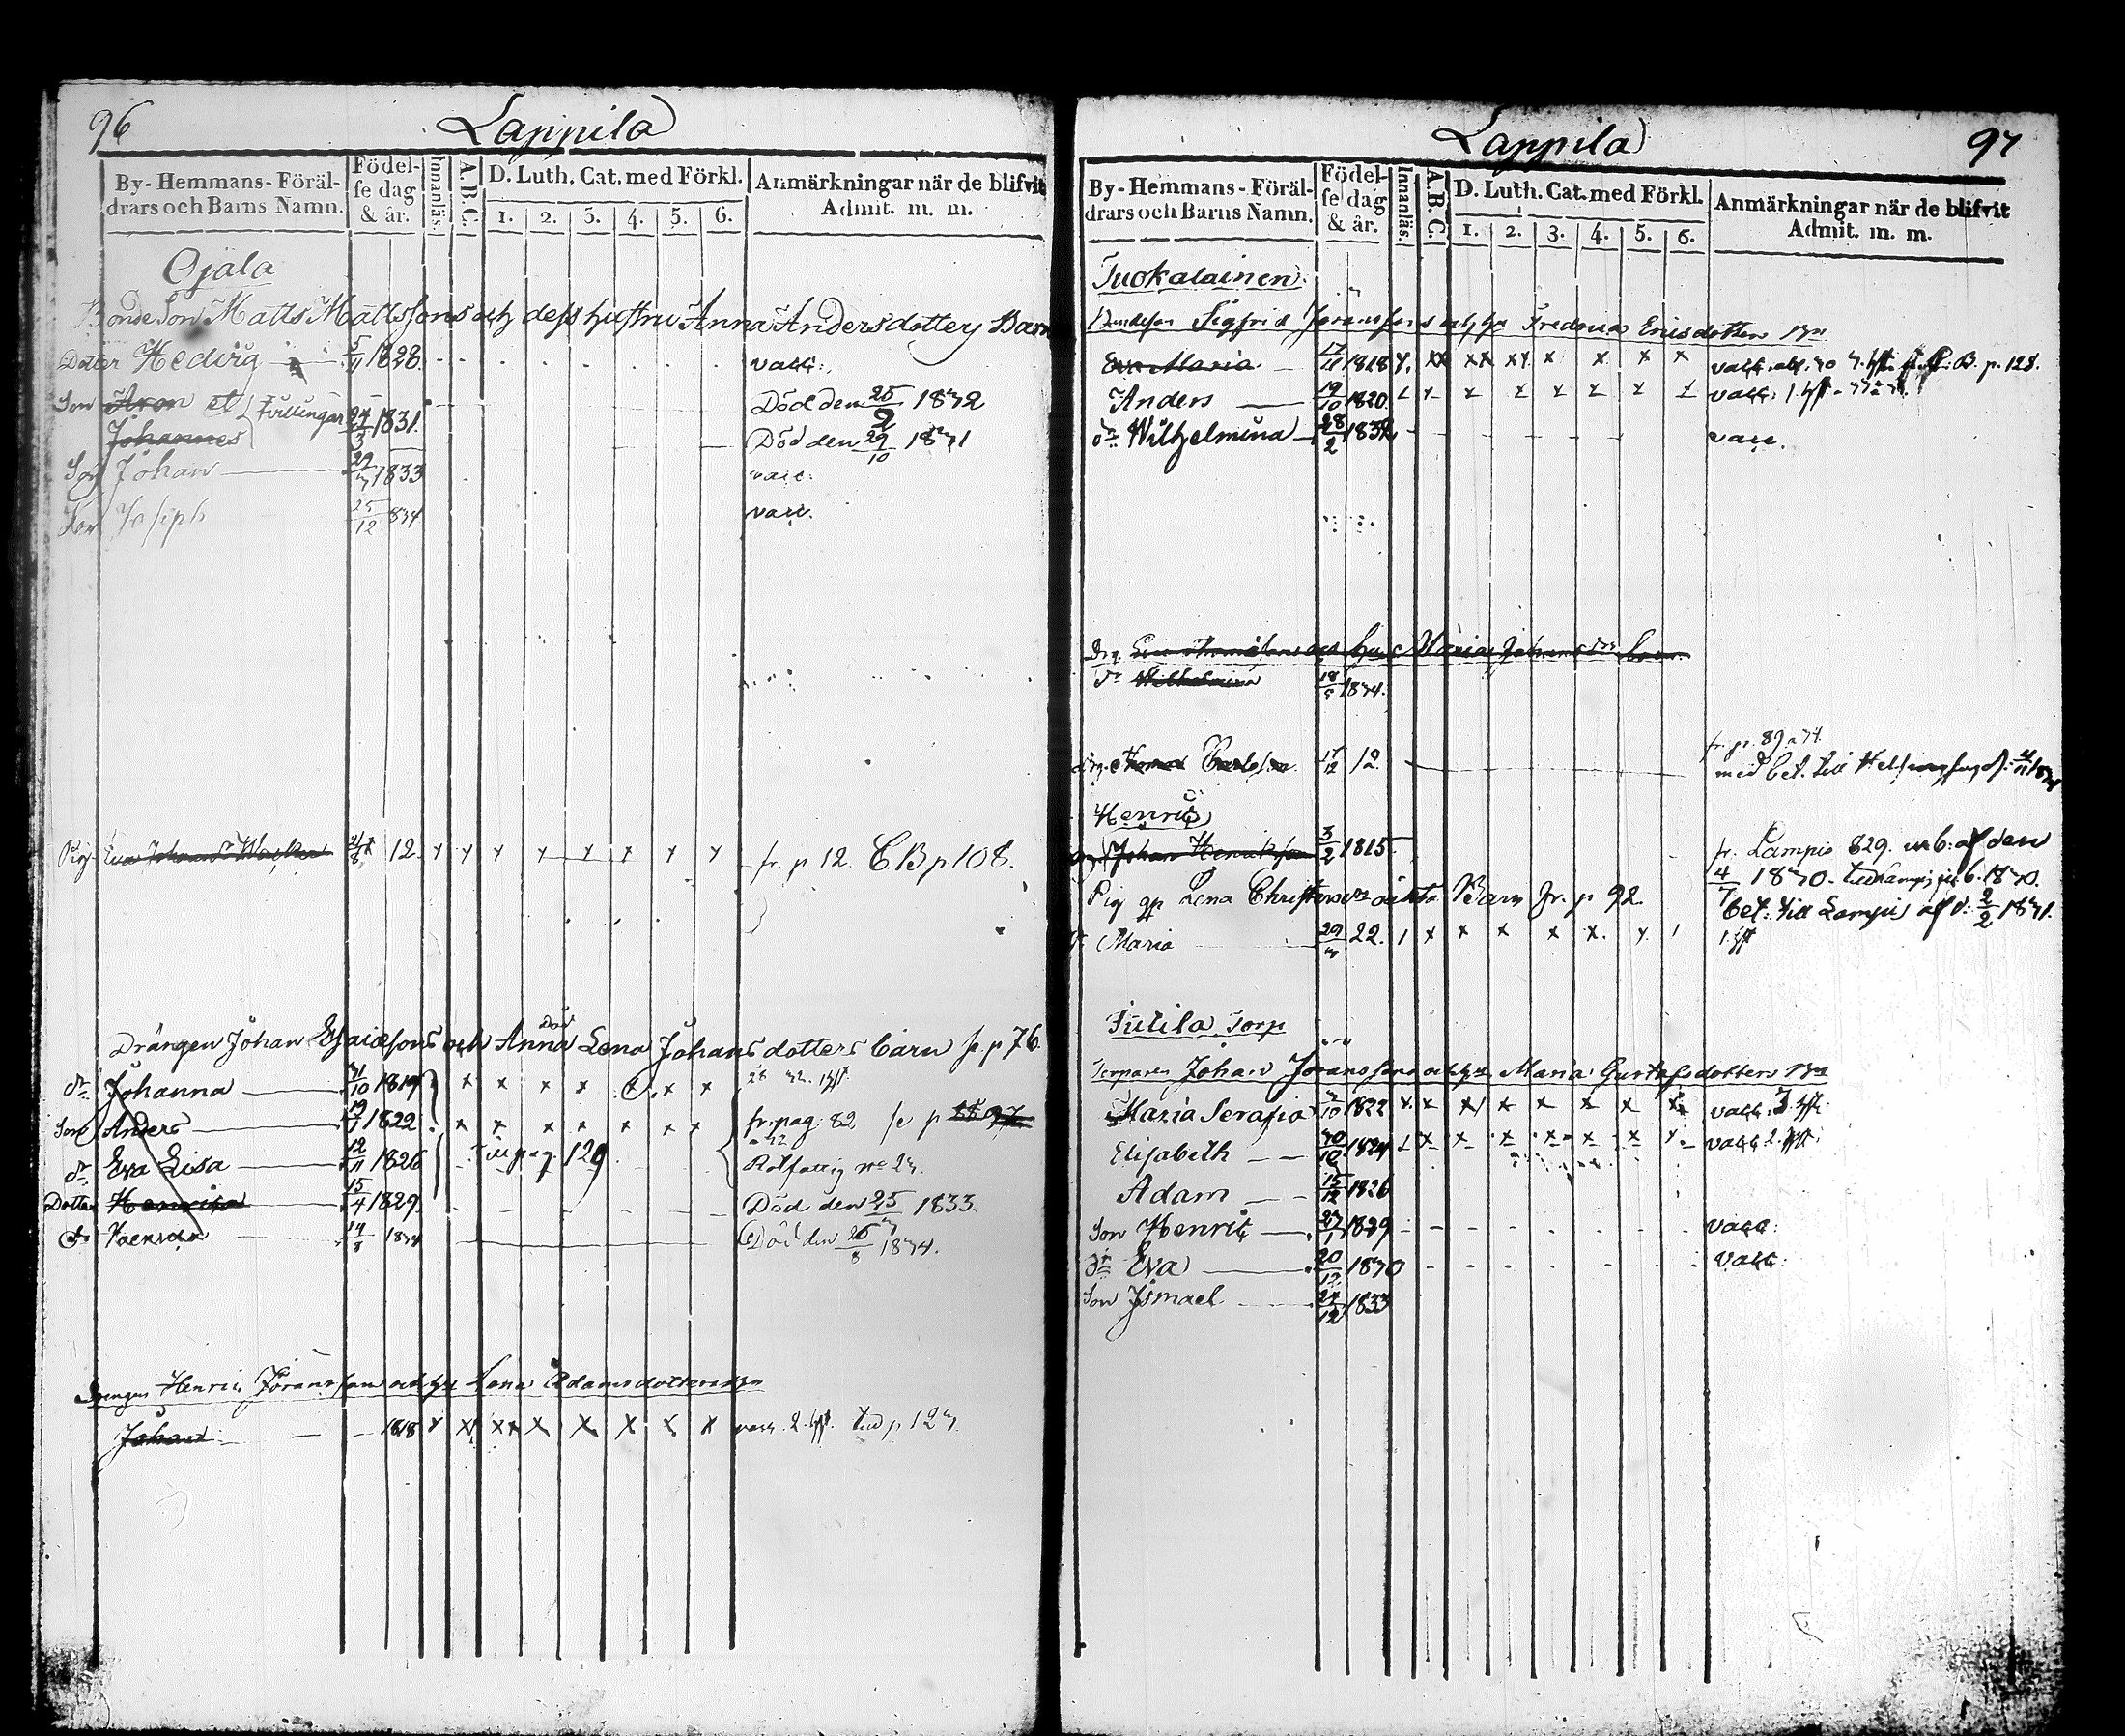 96
Lappila
By-Hemmans-Föräl-
drars och Barns Namn.
Födel-
se dag
& år.
Innanläs.
A.B.C.
D. Luth. Cat. med Förkl.
1. 2. 3. 4. 5. 6.
Anmärkningar när de blifvit
Admit. m. m.
Ojala
Bonde Son Matts Mattssons och dess hustru Anna Andersdotters Barn
Dotter Hedvig 5/11 1828. vacc:
Son Aron et Tvillingar 24/3 1831. Död den 25/2 1832
Johannes Död den 29/10 1831
Son Johan 29/7 1833 vacc.
Son Joseph 25/12 834 vacc.
Pig. Eva Johansdr 12. x x x x x x x x fr. p 12. C.B. p 108.
Drängen Johan Esaiæsons och Död Anna Lena Johansdotters barn se. p 76.
dr Johanna 31/10 1819 x x x x x x x
Son Anders 19/7 1822. x x x x x x x fr. pag: 82 se p
dr Eva Lisa 12/11 1826 Till pag. 129
Dotter Henrica 15/4 1829. Död den 25/7 1833.
dr 14/8 1834 Död den 26/8 1834.
Drengen Henric Jöransson och hu Lena Adamsdotters Bn
Johan 1818 x x xx x x x x x vacc. 2. hft. till p 127.
97
Lappila
By-Hemmans-Föräl-
drars och Barns Namn.
Födel-
se dag
& år.
Innanläs.
A.B.C.
D. Luth. Cat. med Förkl.
1. 2. 3. 4. 5. 6.
Anmärkningar när de blifvit
Admit. m. m.
Tuokalainen
Bondeson Sigfrid Jöranssons och hu Fredrica Ericsdotters Bn
Eva Maria 17/11 1818 x. xx xx xx. x x x x C. B. p. 128.
Anders 19/10 1820.
dr Wilhelmina 28/2 1832 vacc.
Drg. Maria Johansdr barn
dr Wilhelmina 18/5 1834.
fr. p. 89
drg. Carlsson 12. med bet. till
Henric
Johan Henricsson 3/2 1815 fr. Lampis 829. af den
4/7 1830.
bet: till Lampis af d: 2/2 1831.
Pig Lena Christersdrs oächta Barn fr. p 92.
dr Maria 29/7 22. 1 x x x x x. x. 1 1. hft
Jutila Torp
Torparen Johan Jöranssons och hu Maria Gustafsdotters Bn
Maria Serafia 1822 x. x x x x x x x vacc. 3 hft.
Elisabeth 30/10 1824 vacc 2. hft.
Adam 15/12 1826
Son Henric 27/1 1829 vacc:
dr Eva 20/12 1830 vacc:
Son Ismael 24/12 1833